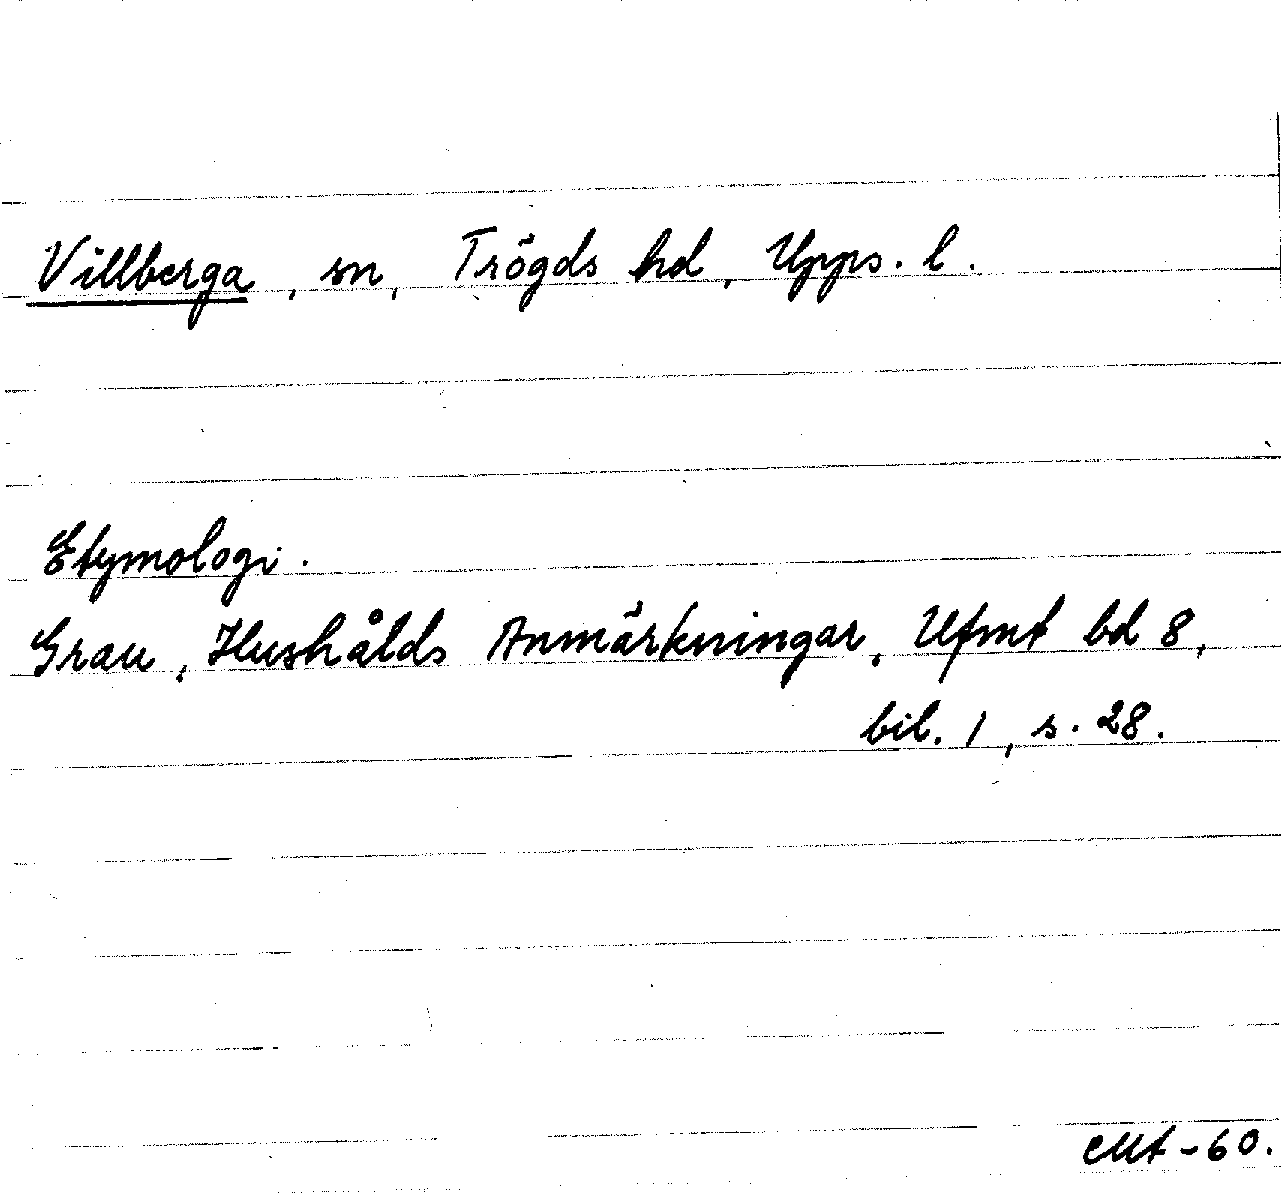 Villberga, sn, Trögds hd, Upps. l.
Etymologi.
Grau, Hushålds Anmärkningar, Ufmt bd 8,
bil. 1, s. 28.
-60.